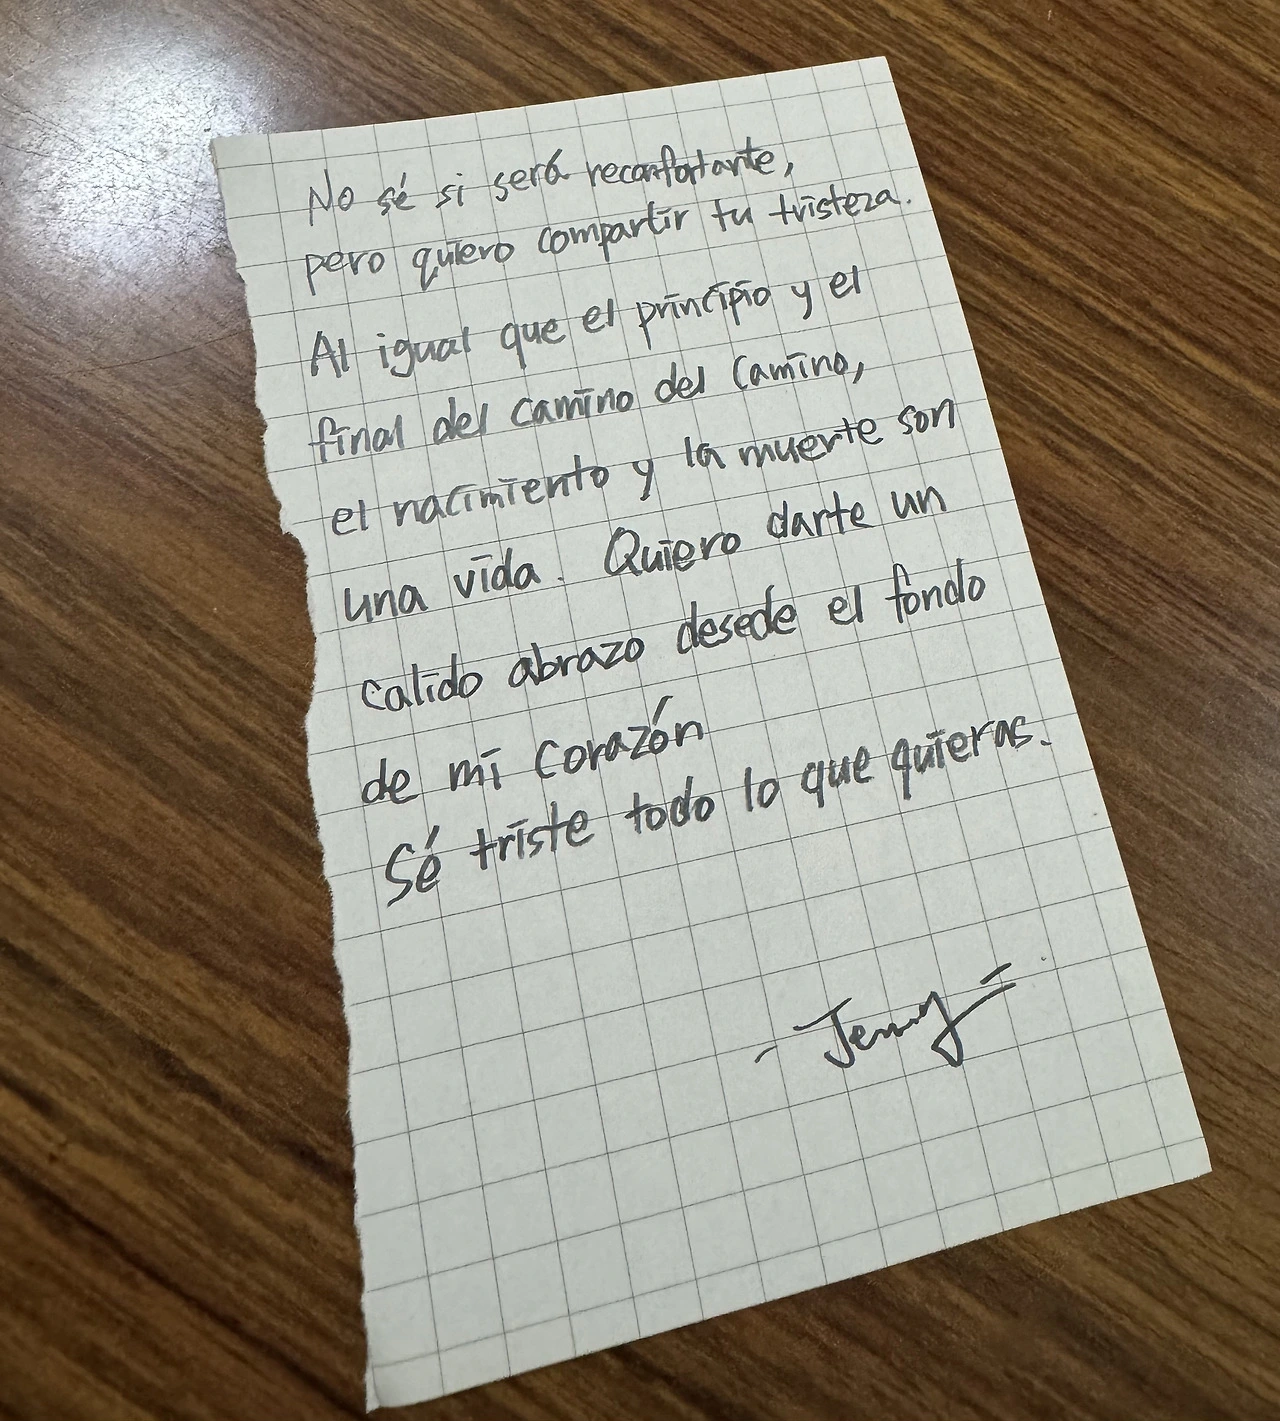 No sé si será reconfortante,
pero quiero compartir tu tristeza.
Al igual que el principio y el
final del camino del Camino,
el nacimiento y la muerte son
una vida. Quiero darte un
calido abrazo desede el fondo
de mi corazón
Sé triste todo lo que quieras.
- Jenny =